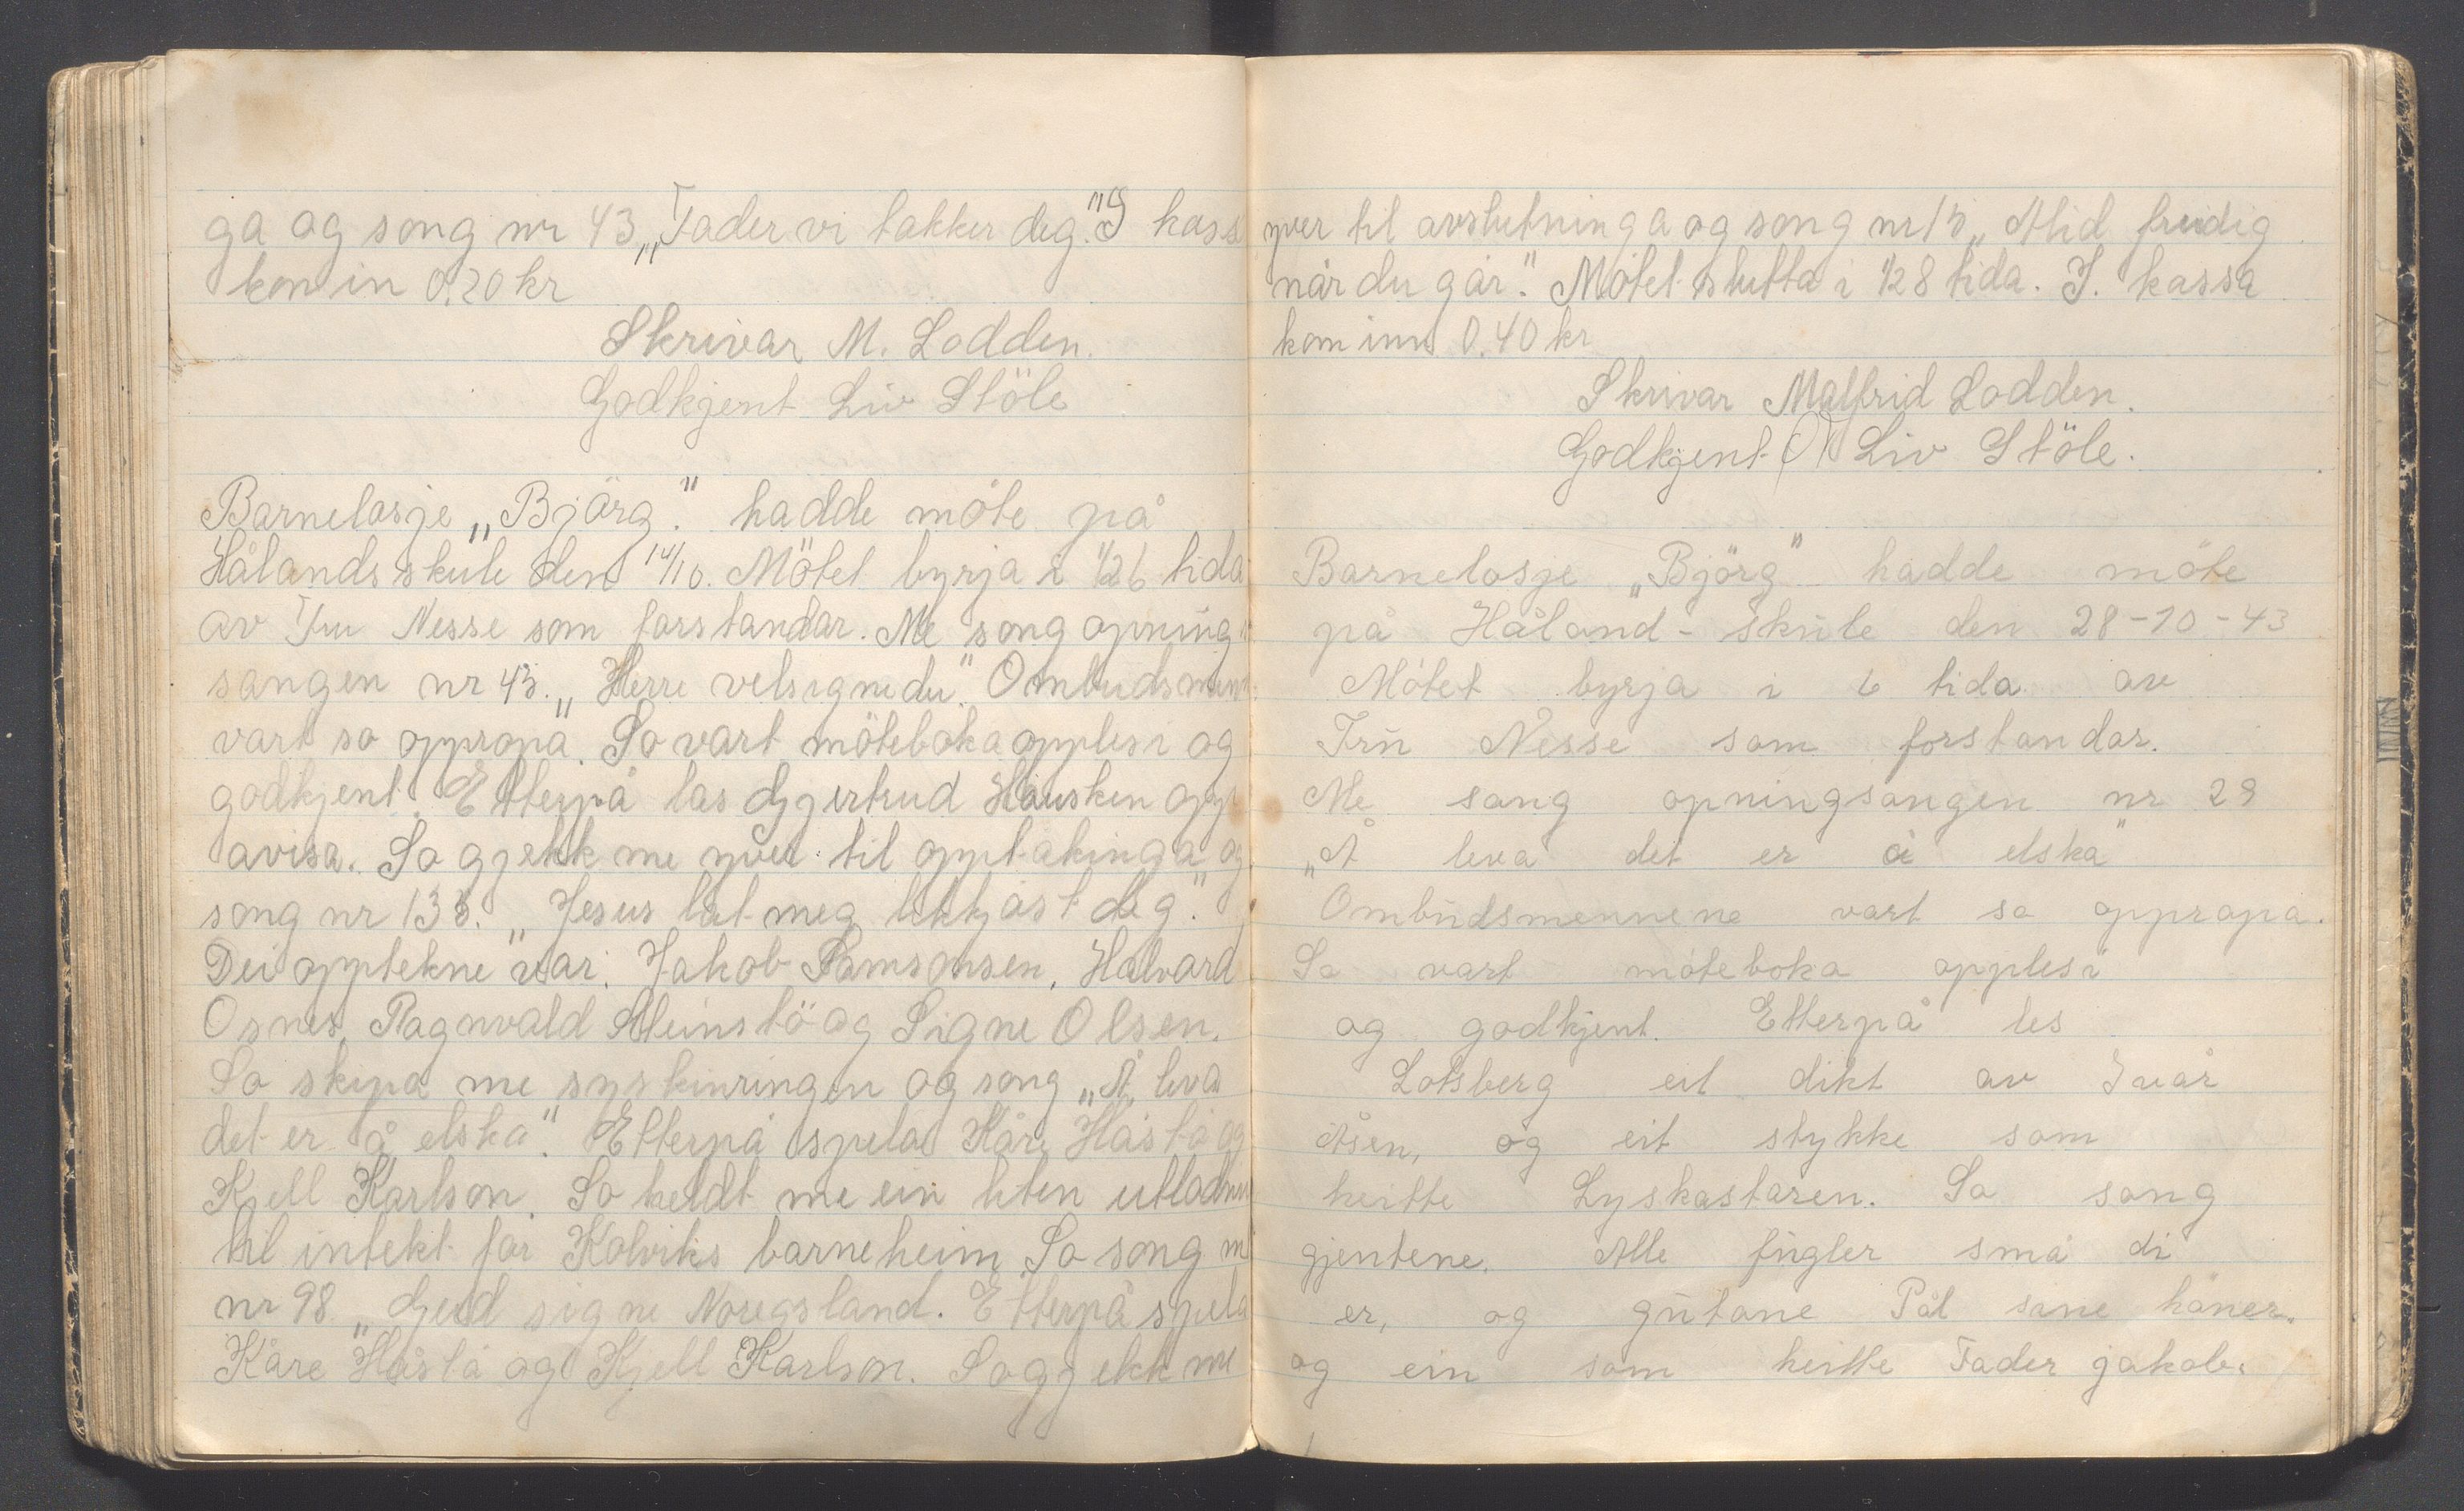 ga og song nr 43 „Fader vi takker deg." I kass
kom in 0.20 kr
Skrivar M. Lodden.
Godkjent Liv Stöle
Barnelosje „Bjørg." hadde möte på
Hålands skule den 14/10. Mötet byrja i ½6 tida
av Fru Nesse som forstandar. Me song opning
sangen nr 43. „Herre velsigne du." Ombudsmenn
vart so oppropa. So vart möteboka opplesi og
godkjent. Etterpå las Gjertrud Hausken opp
avisa. So gjekk me yver til opptakinga og
song nr 133. „Jesus lat meg likkjast deg."
Dei opptekne var. Jakob Samsonsen, Halvard
Osnes, Ragnvald Steinstö og Signe Olsen.
So skipa me syskinringen og song „Å leva
det er å elska". Etterpå spela Kåre Håstå og
Kjell Karlson. So heldt me ein liten utlodnin
til intekt for Kolviks barneheim. So song m
nr 98 „Gud signe Noregsland. Etterpå spela
Kåre Håstå og Kjell Karlson. So gjekk me
yver til avslutninga og song nr 15 „Altid freidig
når du går." Mötet slutta i ½8 tida. I. kassa
kom inn 0.40 kr
Skrivar Malfrid Lodden.
Godkjent Liv Stöle.
Barnelosje „Björg" hadde möte
på Håland-skule den 28-10-43
Mötet byrja i 6 tida av
Fru Nesse som forstandar.
Me sang opningsangen nr 29
„Å leva det er å elska"
Ombudsmennene vart so oppropa.
So vart möteboka opplesi
og godkjent. Etterpå les
Lotsberg eit dikt av Ivår
Åsen, og eit stykke som
heitte Lyskastaren. So song
gjentene. Alle fugler små di
er, og gutane Pål sine höner.
og ein som heitte Fader jakob.